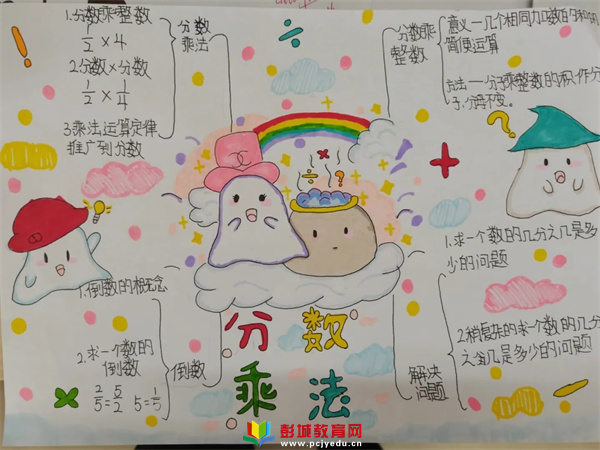 1.分数乘整数
1/2 × 4
2.分数×分数
1/2 × 1/4
3.乘法运算定律
推广到分数
分数
乘法
÷
分数乘
整数
意义—几个相同加数的和的
简便运算
方法—分子乘整数的积作分
子,分母不变。
÷ × ?
?
+
1.倒数的概念
2.求一个数的
倒数
2/5=5/2 5=1/5
倒数
×
分数
乘法
解决
问题
1.求一个数的几分之几是多
少的问题
2.稍复杂的求一个数的几分
之几是多少的问题
彭城教育网
www.pcjyedu.cn